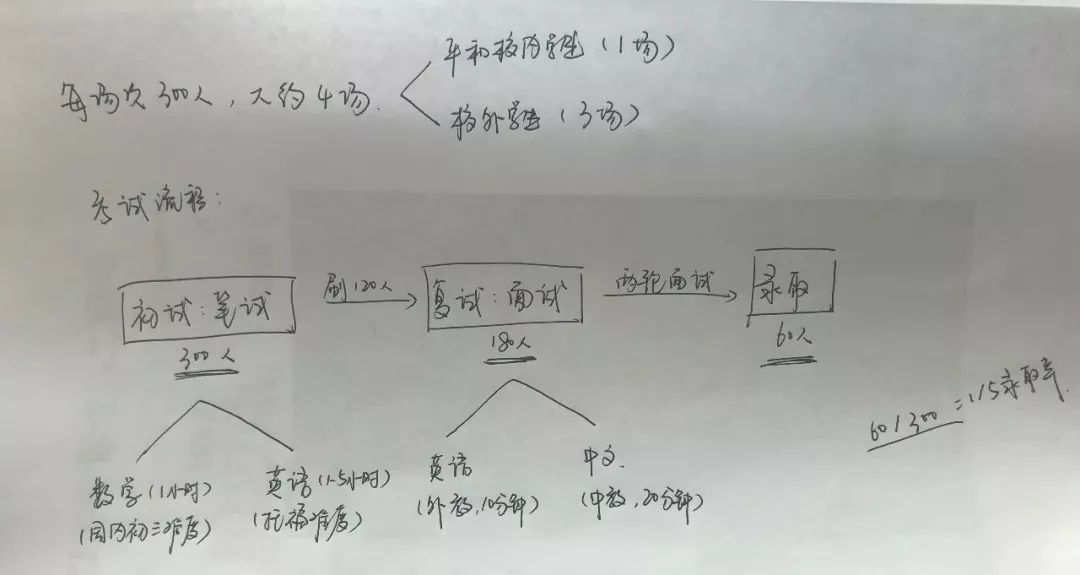 平和校内学生（1场）
每场次300人，大约4场.
校外学生（3场）
考试流程：
初试：笔试
刷120人
复试：面试
两轮面试
录取
300人
180人
60人
60/300=1/5录取率.
数学（1小时）
（国内初三难度）
英语（1.5小时）
（托福难度）
英语
（外教，10分钟）
中文.
（中教，20分钟）